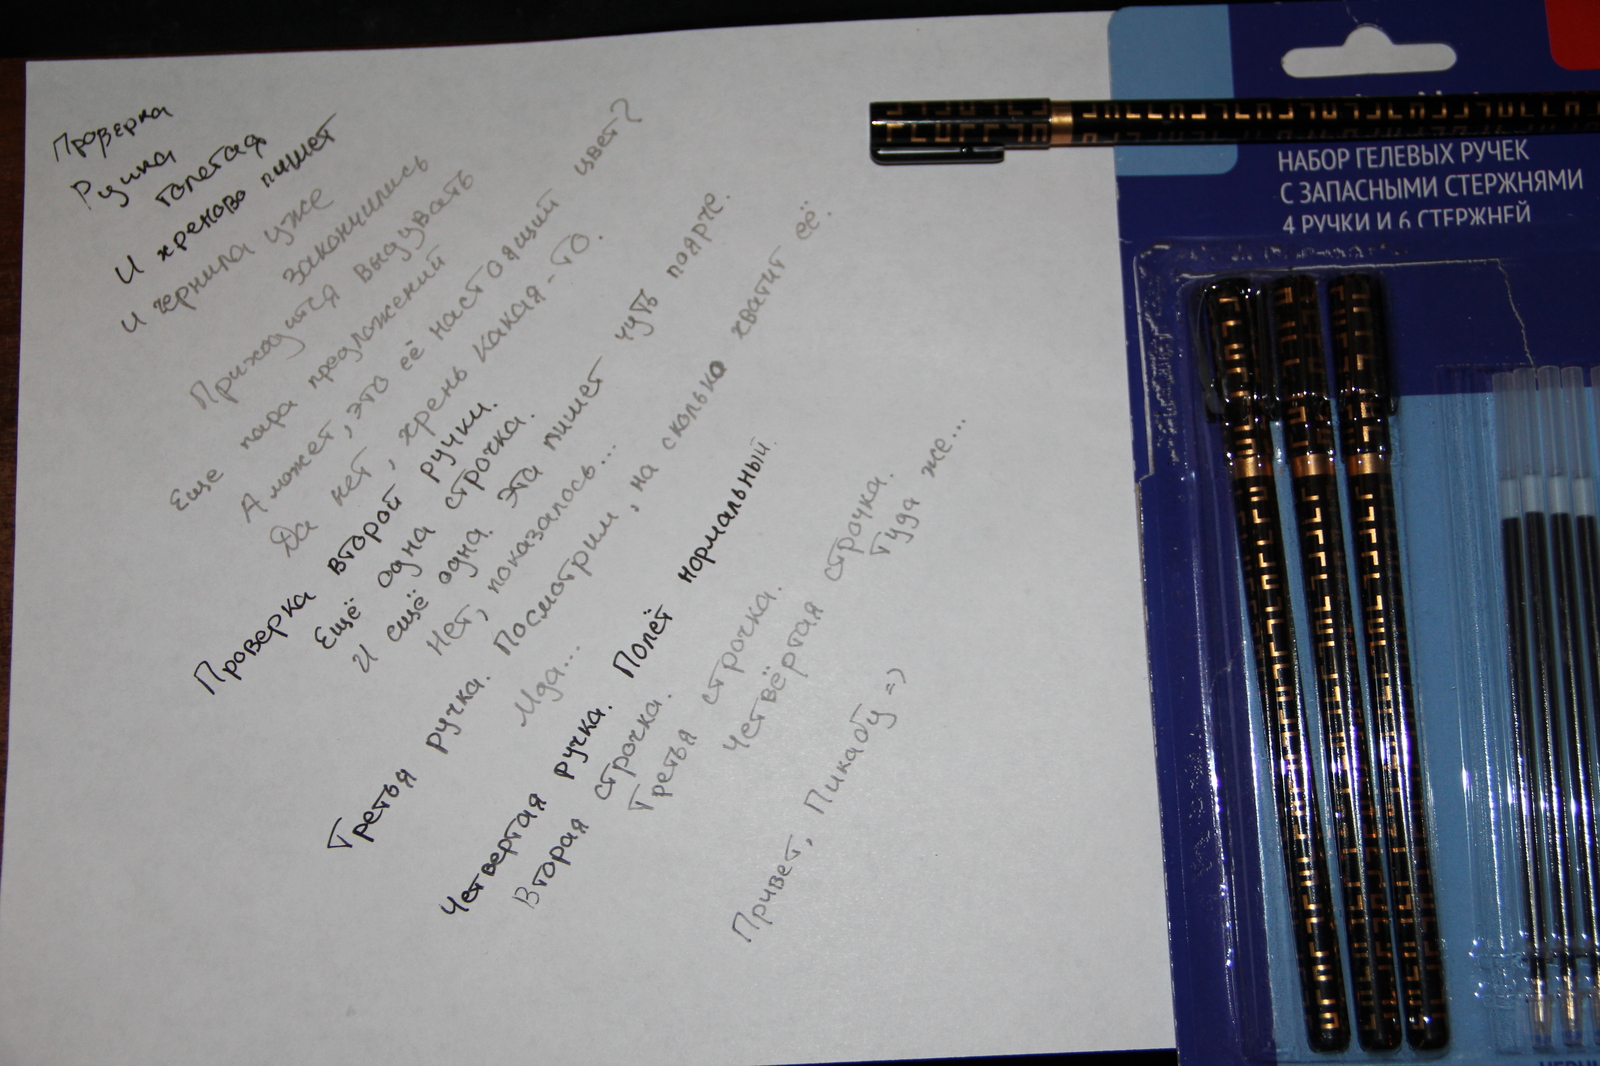 Проверка
Ручка
толстая
И хреново пишет
И чернила уже
закончились
Приходится выдувать
Еще пара предложений
А может, это её настоящий цвет?
Да нет, хрень какая-то.
Проверка второй ручки.
Ещё одна строчка.
И ещё одна. Эта пишет чуть поярче.
Нет, показалось...
Третья ручка. Посмотрим, на сколько хватит её.
Мда...
Четвертая ручка. Полёт нормальный
Вторая строчка.
Третья строчка.
Четвёртая строчка.
Туда же...
Привет, Пикабу =)
НАБОР ГЕЛЕВЫХ РУЧЕК
С ЗАПАСНЫМИ СТЕРЖНЯМИ
4 РУЧКИ И 6 СТЕРЖНЕЙ